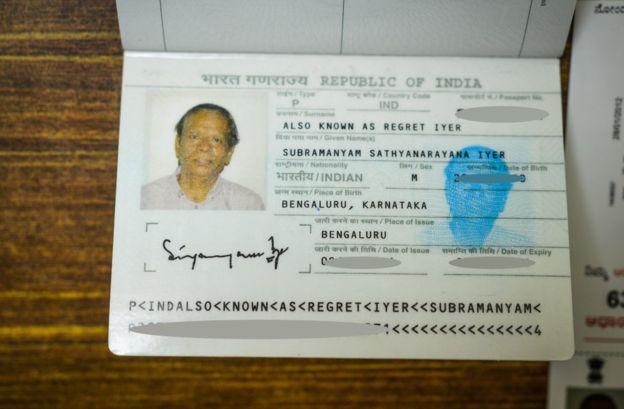 भारत गणराज्य REPUBLIC OF INDIA
टाईप / Type राष्ट्र कोड / Country Code पासपोर्ट नं. / Passport No.
P IND
उपनाम / Surname
ALSO KNOWN AS REGRET IYER
दिया गया नाम / Given Name(s)
SUBRAMANYAM SATHYANARAYANA IYER
राष्ट्रीयता / Nationality लिंग / Sex जन्मतिथि / Date of Birth
भारतीय/INDIAN M
जन्म स्थान / Place of Birth
BENGALURU, KARNATAKA
जारी करने का स्थान / Place of Issue
BENGALURU
जारी करने की तिथि / Date of Issue समाप्ति की तिथि / Date of Expiry
P<INDALSO<KNOWN<AS<REGRET<IYER<<SUBRAMANYAM<
<<<<<<<<<<<<<<<4
28/01/2012